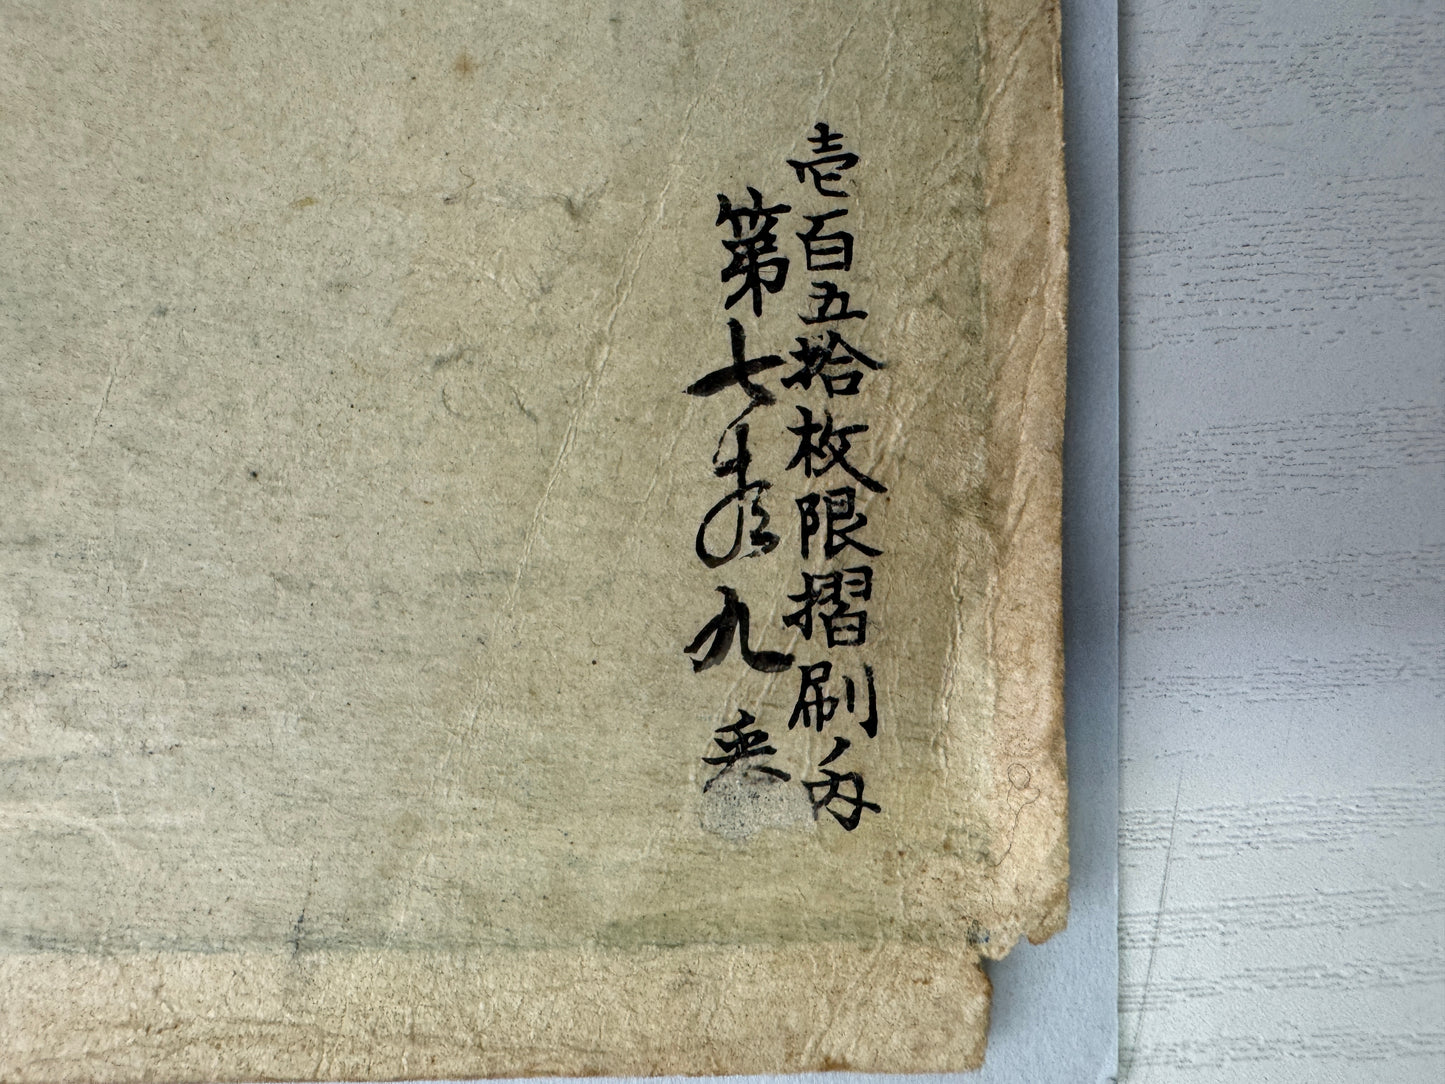 壱百五拾枚限摺刷内
第七拾九